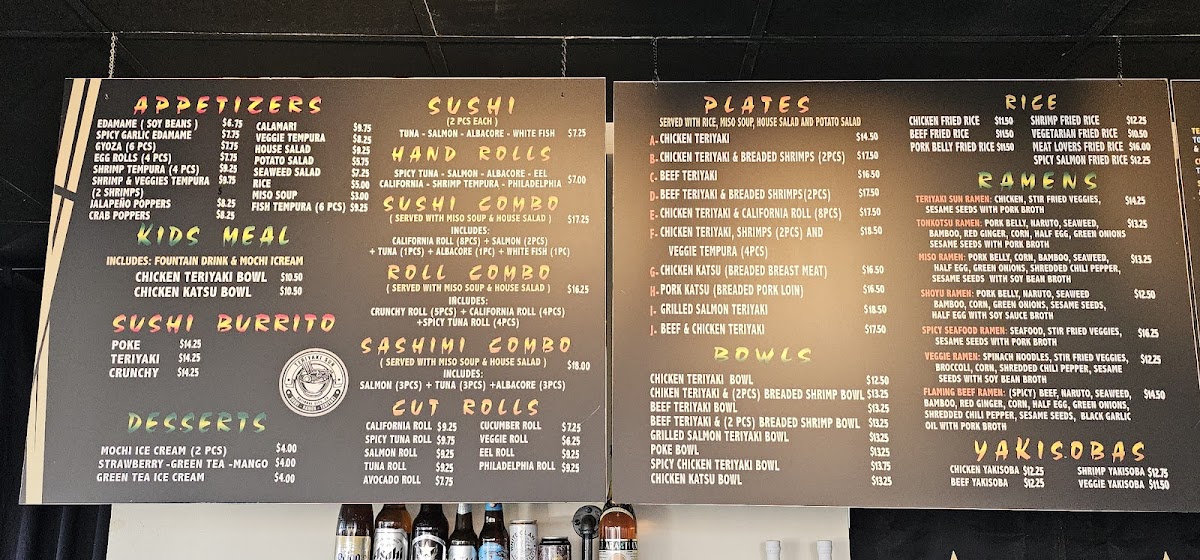 APPETIZERS
EDAMAME ( SOY BEANS ) $6.75
SPICY GARLIC EDAMAME $7.75
GYOZA (6 PCS) $7.75
EGG ROLLS (4 PCS) $7.75
SHRIMP TEMPURA (4 PCS) $9.25
SHRIMP & VEGGIES TEMPURA $9.75
(2 SHRIMPS)
JALAPEÑO POPPERS $8.25
CRAB POPPERS $8.25
CALAMARI $9.75
VEGGIE TEMPURA $8.25
HOUSE SALAD $9.25
POTATO SALAD $3.75
SEAWEED SALAD $7.25
RICE $5.00
MISO SOUP $3.00
FISH TEMPURA (6 PCS) $9.25
KIDS MEAL
INCLUDES: FOUNTAIN DRINK & MOCHI ICREAM
CHICKEN TERIYAKI BOWL $10.50
CHICKEN KATSU BOWL $10.50
SUSHI BURRITO
POKE $14.25
TERIYAKI $14.25
CRUNCHY $14.25
TERIYAKI SUN
DESSERTS
MOCHI ICE CREAM (2 PCS) $4.00
STRAWBERRY -GREEN TEA -MANGO $4.00
GREEN TEA ICE CREAM $4.00
SUSHI
(2 PCS EACH )
TUNA - SALMON - ALBACORE - WHITE FISH $7.25
HAND ROLLS
SPICY TUNA - SALMON - ALBACORE - EEL
CALIFORNIA - SHRIMP TEMPURA - PHILADELPHIA $7.00
SUSHI COMBO
( SERVED WITH MISO SOUP & HOUSE SALAD ) $17.25
INCLUDES:
CALIFORNIA ROLL (8PCS) + SALMON (2PCS)
+ TUNA (1PCS) + ALBACORE (1PC) + WHITE FISH (1PC)
ROLL COMBO
( SERVED WITH MISO SOUP & HOUSE SALAD ) $16.25
INCLUDES:
CRUNCHY ROLL (5PCS) + CALIFORNIA ROLL (4PCS)
+SPICY TUNA ROLL (4PCS)
SASHIMI COMBO
( SERVED WITH MISO SOUP & HOUSE SALAD ) $18.00
INCLUDES:
SALMON (3PCS) + TUNA (3PCS) +ALBACORE (3PCS)
CUT ROLLS
CALIFORNIA ROLL $9.25
SPICY TUNA ROLL $9.75
SALMON ROLL $9.25
TUNA ROLL $9.25
AVOCADO ROLL $7.75
CUCUMBER ROLL $7.25
VEGGIE ROLL $6.25
EEL ROLL $9.25
PHILADELPHIA ROLL $9.25
PLATES
SERVED WITH RICE, MISO SOUP, HOUSE SALAD AND POTATO SALAD
A- CHICKEN TERIYAKI $14.50
B- CHICKEN TERIYAKI & BREADED SHRIMPS (2PCS) $17.50
C- BEEF TERIYAKI $16.50
D- BEEF TERIYAKI & BREADED SHRIMPS(2PCS) $17.50
E- CHICKEN TERIYAKI & CALIFORNIA ROLL (8PCS) $17.50
F- CHICKEN TERIYAKI, SHRIMPS (2PCS) AND $18.50
VEGGIE TEMPURA (4PCS)
G- CHICKEN KATSU (BREADED BREAST MEAT) $16.50
H- PORK KATSU (BREADED PORK LOIN) $16.50
I- GRILLED SALMON TERIYAKI $18.50
J- BEEF & CHICKEN TERIYAKI $17.50
BOWLS
CHICKEN TERIYAKI BOWL $12.50
CHIKEN TERIYAKI & (2PCS) BREADED SHRIMP BOWL $13.25
BEEF TERIYAKI BOWL $13.25
BEEF TERIYAKI & (2 PCS) BREADED SHRIMP BOWL $13.25
GRILLED SALMON TERIYAKI BOWL $13.25
POKE BOWL $13.25
SPICY CHICKEN TERIYAKI BOWL $13.75
CHICKEN KATSU BOWL $13.25
RICE
CHICKEN FRIED RICE $11.50
BEEF FRIED RICE $11.50
PORK BELLY FRIED RICE $11.50
SHRIMP FRIED RICE $12.25
VEGETARIAN FRIED RICE $10.50
MEAT LOVERS FRIED RICE $16.00
SPICY SALMON FRIED RICE $12.25
RAMENS
TERIYAKI SUN RAMEN: CHICKEN, STIR FRIED VEGGIES, $14.25
SESAME SEEDS WITH PORK BROTH
TONKOTSU RAMEN: PORK BELLY, NARUTO, SEAWEED, $13.25
BAMBOO, RED GINGER, CORN, HALF EGG, GREEN ONIONS
SESAME SEEDS WITH PORK BROTH
MISO RAMEN: PORK BELLY, CORN, BAMBOO, SEAWEED, $13.25
HALF EGG, GREEN ONIONS, SHREDDED CHILI PEPPER,
SESAME SEEDS WITH SOY BEAN BROTH
SHOYU RAMEN: PORK BELLY, NARUTO, SEAWEED $12.50
BAMBOO, CORN, GREEN ONIONS, SESAME SEEDS,
HALF EGG WITH SOY SAUCE BROTH
SPICY SEAFOOD RAMEN: SEAFOOD, STIR FRIED VEGGIES, $16.25
SESAME SEEDS WITH PORK BROTH
VEGGIE RAMEN: SPINACH NOODLES, STIR FRIED VEGGIES, $12.25
BROCCOLI, CORN, SHREDDED CHILI PEPPER, SESAME
SEEDS WITH SOY BEAN BROTH
FLAMING BEEF RAMEN: (SPICY) BEEF, NARUTO, SEAWEED, $14.50
BAMBOO, RED GINGER, CORN, HALF EGG, GREEN ONIONS,
SHREDDED CHILI PEPPER, SESAME SEEDS, BLACK GARLIC
OIL WITH PORK BROTH
YAKISOBAS
CHICKEN YAKISOBA $12.25
BEEF YAKISOBA $12.25
SHRIMP YAKISOBA $12.75
VEGGIE YAKISOBA $11.50
Asahi